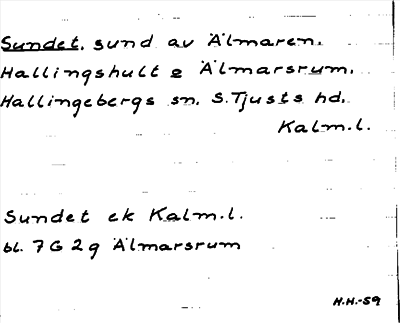 Sundet, sund av Älmaren.
Hallingshult o Älmarsrum,
Hallingebergs sn, S. Tjusts hd,
Kalm.l.
Sundet ek Kalm.l.
bl. 7G 2g Älmarsrum
H.H.-59